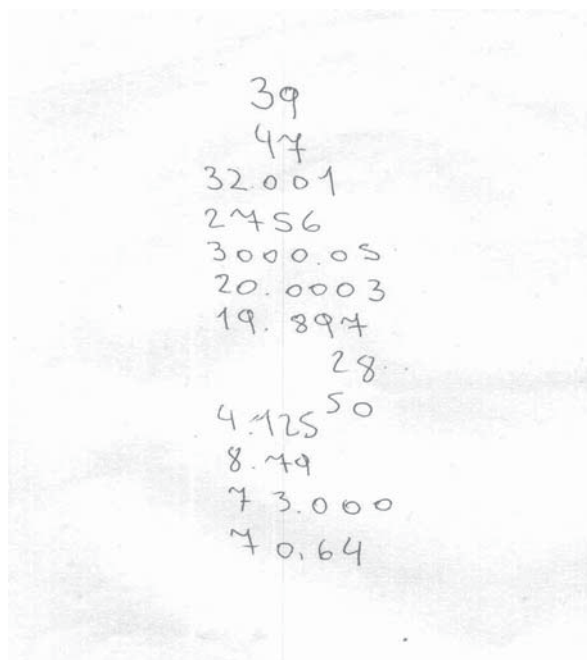 39
47
32.001
2756
3000.05
20.0003
19.897
28
50
4.125
8.79
73.000
70.64